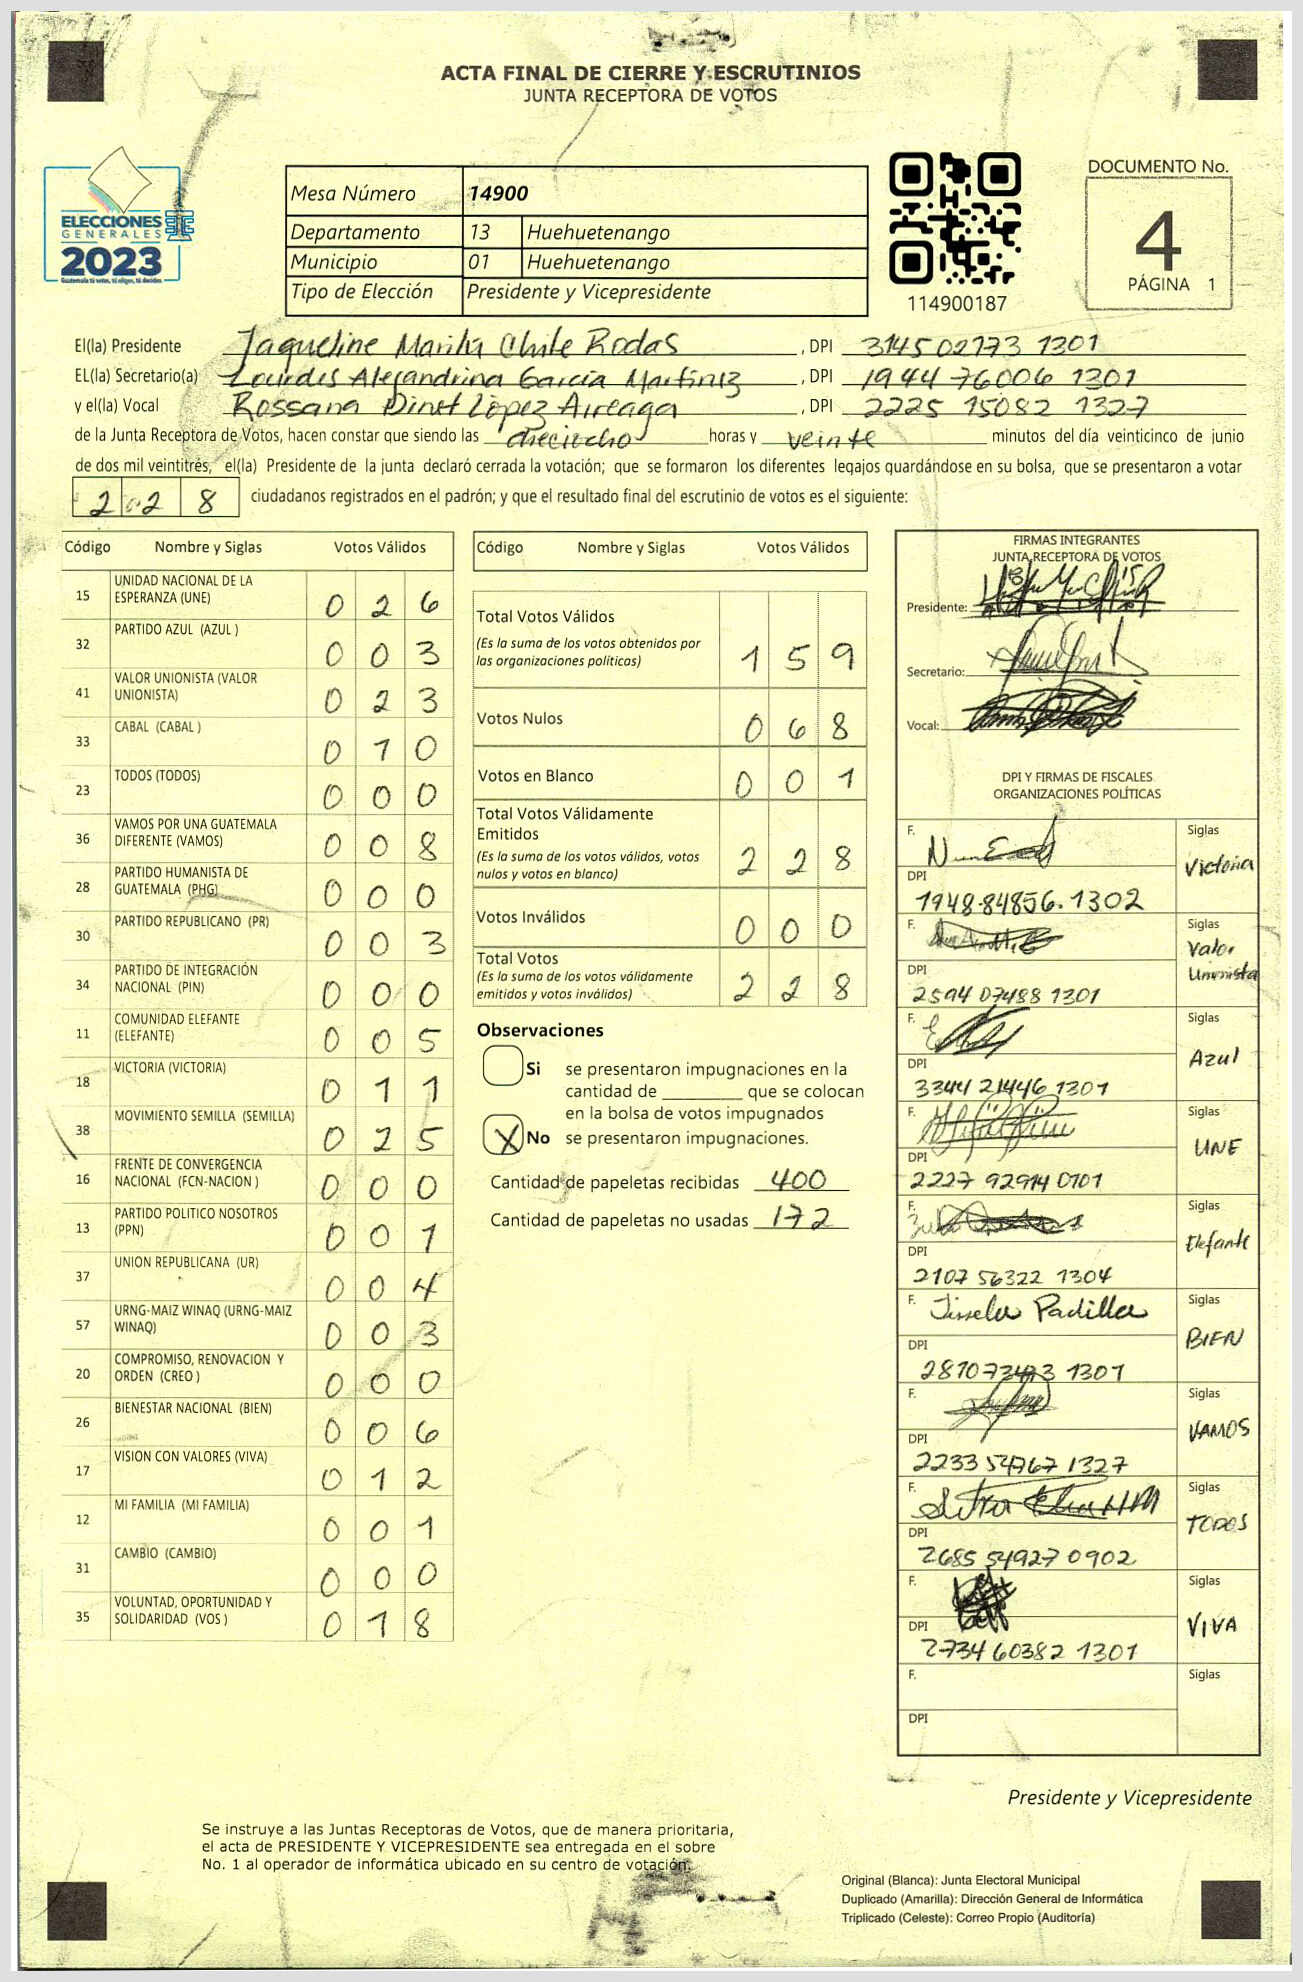 ACTA FINAL DE CIERRE Y ESCRUTINIOS
JUNTA RECEPTORA DE VOTOS
ELECCIONES
GENERALES
2023
Guatemala tú votas, tú eliges, tú decides
Mesa Número 14900
Departamento 13 Huehuetenango
Municipio 01 Huehuetenango
Tipo de Elección Presidente y Vicepresidente
114900187
DOCUMENTO No.
4
PÁGINA 1
El(la) Presidente Jaqueline Marila Chile Rodas, DPI 314502773 1301
EL(la) Secretario(a) Lourdes Alejandrina García Martiniz, DPI 1944 76006 1301
y el(la) Vocal Rossana Dinet López Aireaga, DPI 2225 15082 1327
de la Junta Receptora de Votos, hacen constar que siendo las dieciocho horas y veinte minutos del día veinticinco de junio
de dos mil veintitrés, el(la) Presidente de la junta declaró cerrada la votación; que se formaron los diferentes legajos guardándose en su bolsa, que se presentaron a votar
2 2 8 ciudadanos registrados en el padrón; y que el resultado final del escrutinio de votos es el siguiente:
Código Nombre y Siglas Votos Válidos
15 UNIDAD NACIONAL DE LA ESPERANZA (UNE) 0 2 6
32 PARTIDO AZUL (AZUL ) 0 0 3
41 VALOR UNIONISTA (VALOR UNIONISTA) 0 2 3
33 CABAL (CABAL ) 0 1 0
23 TODOS (TODOS) 0 0 0
36 VAMOS POR UNA GUATEMALA DIFERENTE (VAMOS) 0 0 8
28 PARTIDO HUMANISTA DE GUATEMALA (PHG) 0 0 0
30 PARTIDO REPUBLICANO (PR) 0 0 3
34 PARTIDO DE INTEGRACIÓN NACIONAL (PIN) 0 0 0
11 COMUNIDAD ELEFANTE (ELEFANTE) 0 0 5
18 VICTORIA (VICTORIA) 0 1 1
38 MOVIMIENTO SEMILLA (SEMILLA) 0 2 5
16 FRENTE DE CONVERGENCIA NACIONAL (FCN-NACION ) 0 0 0
13 PARTIDO POLITICO NOSOTROS (PPN) 0 0 1
37 UNION REPUBLICANA (UR) 0 0 4
57 URNG-MAIZ WINAQ (URNG-MAIZ WINAQ) 0 0 3
20 COMPROMISO, RENOVACION Y ORDEN (CREO ) 0 0 0
26 BIENESTAR NACIONAL (BIEN) 0 0 6
17 VISION CON VALORES (VIVA) 0 1 2
12 MI FAMILIA (MI FAMILIA) 0 0 1
31 CAMBIO (CAMBIO) 0 0 0
35 VOLUNTAD, OPORTUNIDAD Y SOLIDARIDAD (VOS ) 0 1 8
Código Nombre y Siglas Votos Válidos
Total Votos Válidos
(Es la suma de los votos obtenidos por
las organizaciones políticas) 1 5 9
Votos Nulos 0 6 8
Votos en Blanco 0 0 1
Total Votos Válidamente
Emitidos
(Es la suma de los votos válidos, votos
nulos y votos en blanco) 2 2 8
Votos Inválidos 0 0 0
Total Votos
(Es la suma de los votos válidamente
emitidos y votos inválidos) 2 2 8
Observaciones
Si se presentaron impugnaciones en la
cantidad de ________ que se colocan
en la bolsa de votos impugnados
X No se presentaron impugnaciones.
Cantidad de papeletas recibidas 400
Cantidad de papeletas no usadas 172
FIRMAS INTEGRANTES
JUNTA RECEPTORA DE VOTOS
Presidente:
Secretario:
Vocal:
DPI Y FIRMAS DE FISCALES
ORGANIZACIONES POLÍTICAS
F. Siglas
Victoria
DPI
1948-84856.1302
F. Siglas
Valor
Unionista
DPI
2594 07488 1301
F. Siglas
Azul
DPI
3344 21446 1301
F. Siglas
UNE
DPI
2227 92914 0101
F. Siglas
Elefante
DPI
2107 56322 1304
F. Jissela Padilla Siglas
BIEN
DPI
1301
F. Siglas
VAMOS
DPI
2233 54767 1327
F. Siglas
TODOS
DPI
2685 54927 0902
F. Siglas
VIVA
DPI
2734 60382 1301
F. Siglas
DPI
Presidente y Vicepresidente
Se instruye a las Juntas Receptoras de Votos, que de manera prioritaria,
el acta de PRESIDENTE Y VICEPRESIDENTE sea entregada en el sobre
No. 1 al operador de informática ubicado en su centro de votación.
Original (Blanca): Junta Electoral Municipal
Duplicado (Amarilla): Dirección General de Informática
Triplicado (Celeste): Correo Propio (Auditoría)